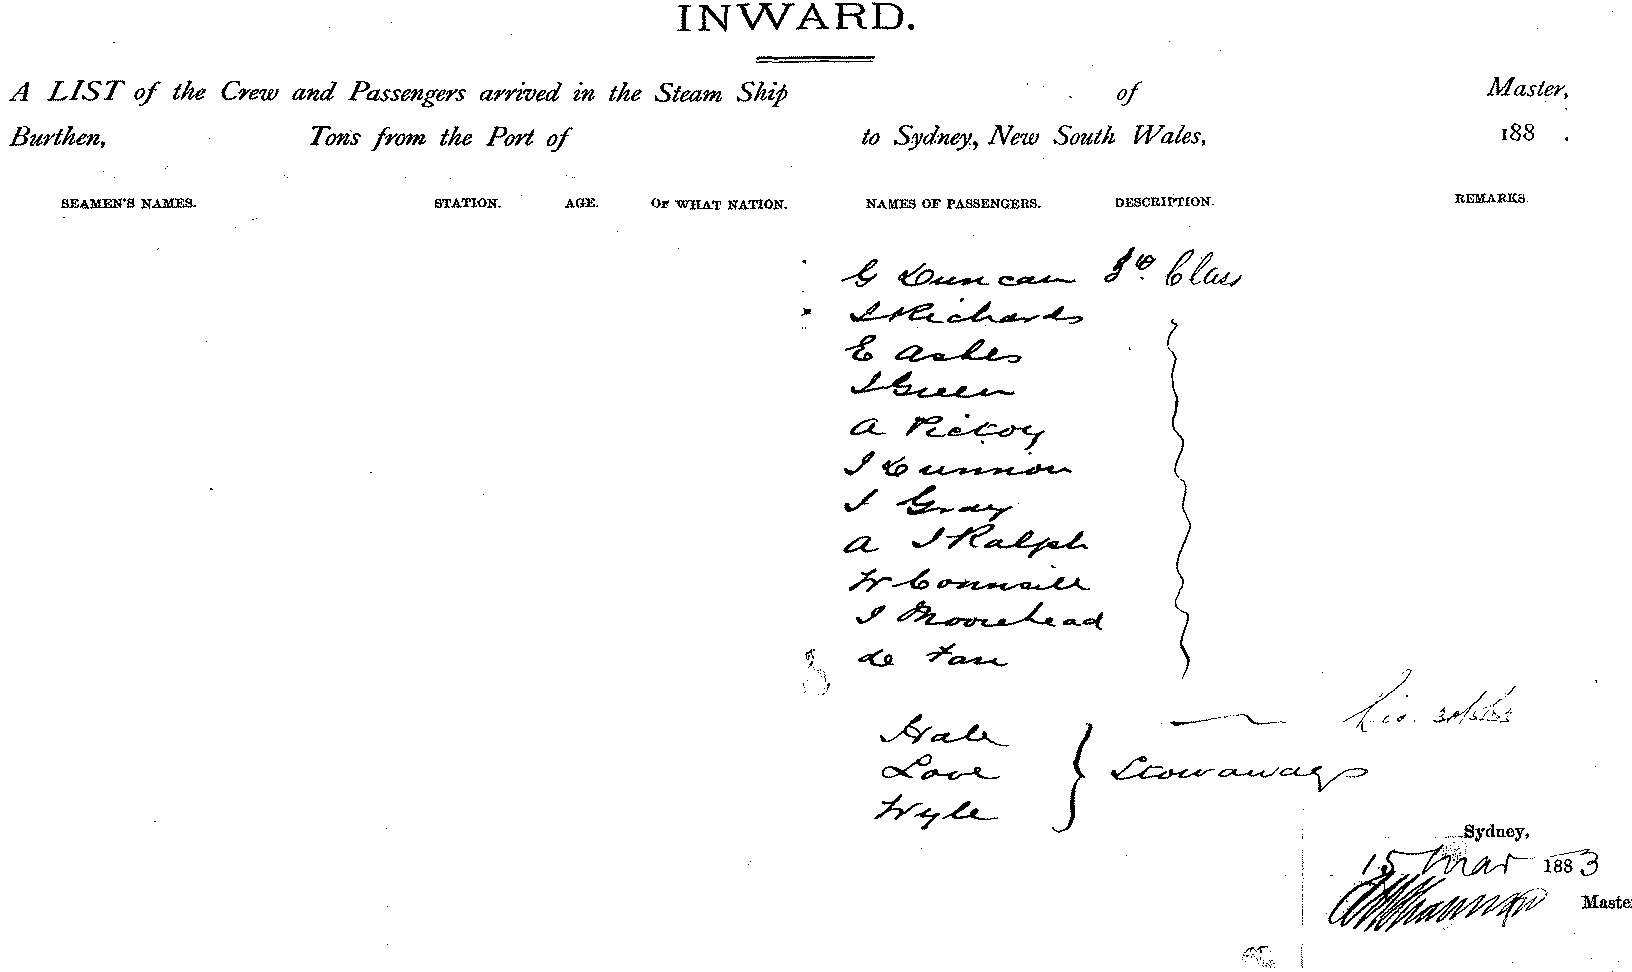 INWARD.
A LIST of the Crew and Passengers arrived in the Steam Ship of Master,
Burthen, Tons from the Port of to Sydney, New South Wales, 188 .
SEAMEN'S NAMES. STATION. AGE. OF WHAT NATION. NAMES OF PASSENGERS. DESCRIPTION. REMARKS.
G Duncan Class
J Richards
E Ashes
J Green
A Pickoy
J Dunnion
J Gray
A J Ralph
W Counsill
J Moorehead
de Fan
Hale
Love } Stowaways
Wyle
Sydney,
15 Mar 1883
Master